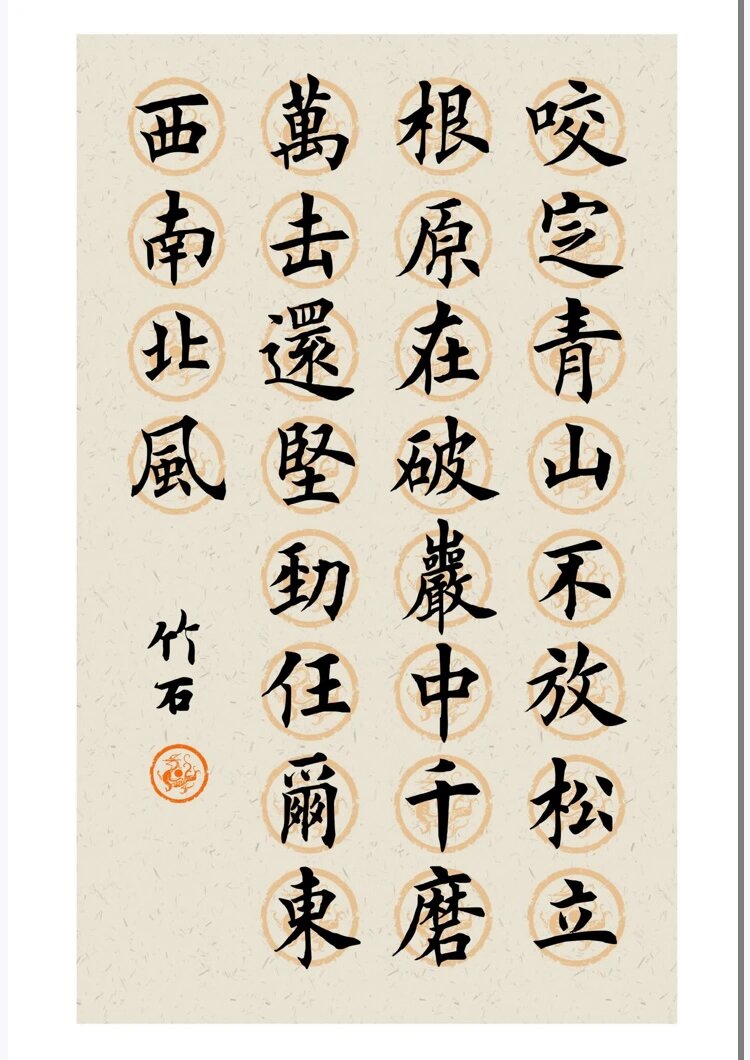 咬定青山不放松立
根原在破巖中千磨
萬击還堅勁任爾東
西南北風
竹石